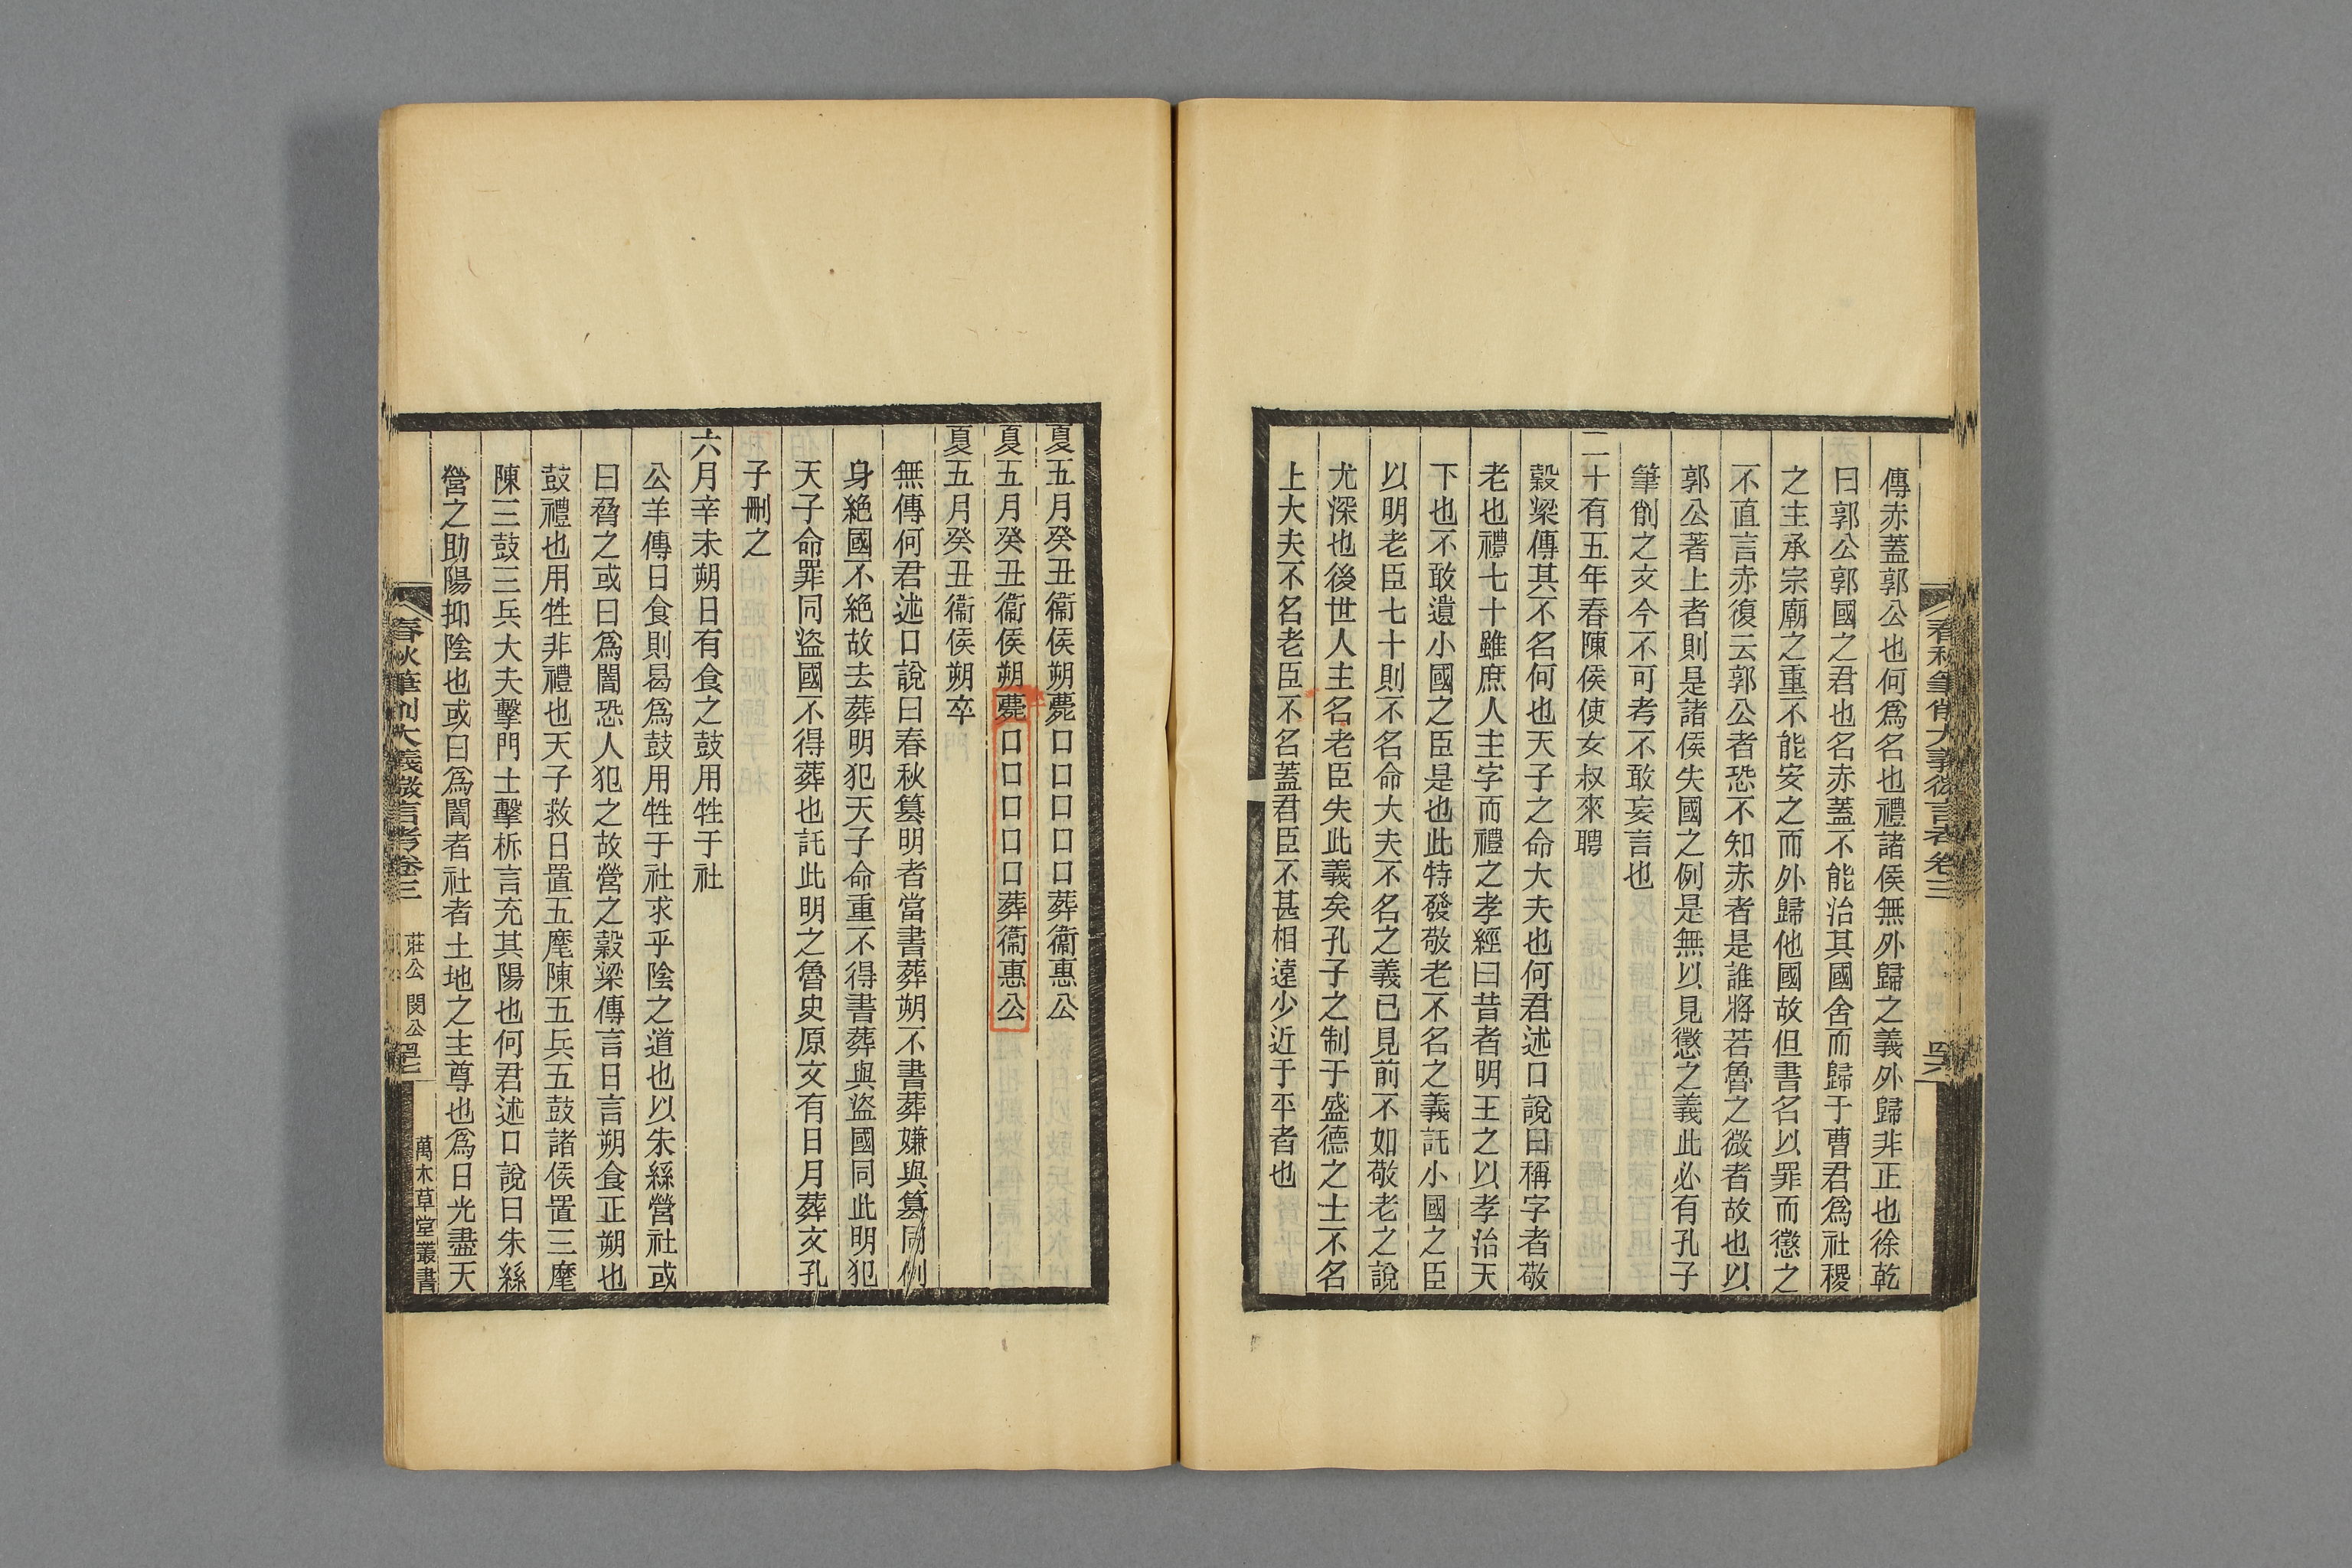 春秋筆削大義微言考卷三
傳赤蓋郭公也何爲名也禮諸侯無外歸之義外歸非正也徐乾
曰郭公郭國之君也名赤蓋不能治其國舍而歸于曹君爲社稷
之主承宗廟之重不能安之而外歸他國故但書名以罪而懲之
不直言赤復云郭公者恐不知赤者是誰將若魯之微者故也以
郭公著上者則是諸侯失國之例是無以見懲之義此必有孔子
筆削之文今不可考不敢妄言也
二十有五年春陳侯使女叔來聘
穀梁傳其不名何也天子之命大夫也何君述口說曰稱字者敬
老也禮七十雖庶人主字而禮之孝經曰昔者明王之以孝治天
下也不敢遺小國之臣是也此特發敬老不名之義託小國之臣
以明老臣七十則不名命大夫不名之義已見前不如敬老之說
尤深也後世人主名老臣失此義矣孔子之制于盛德之士不名
上大夫不名老臣不名蓋君臣不甚相遠少近于平者也
夏五月癸丑衞侯朔薨口口口口口葬衞惠公
夏五月癸丑衞侯朔薨口口口口口葬衞惠公
卒
夏五月癸丑衞侯朔卒
無傳何君述口說曰春秋篡明者當書葬朔不書葬嫌與篡同例
身絶國不絶故去葬明犯天子命重不得書葬與盜國同此明犯
天子命罪同盜國不得葬也託此明之魯史原文有日月葬文孔
子刪之
六月辛未朔日有食之鼓用牲于社
公羊傳日食則曷爲鼓用牲于社求乎陰之道也以朱絲營社或
曰脅之或曰爲闇恐人犯之故營之穀梁傳言日言朔食正朔也
鼓禮也用牲非禮也天子救日置五麾陳五兵五鼓諸侯置三麾
陳三鼓三兵大夫擊門士擊柝言充其陽也何君述口說曰朱絲
營之助陽抑陰也或曰爲闇者社者土地之主尊也爲日光盡天
春秋筆削大義微言考卷三 莊公 閔公 萬木草堂叢書